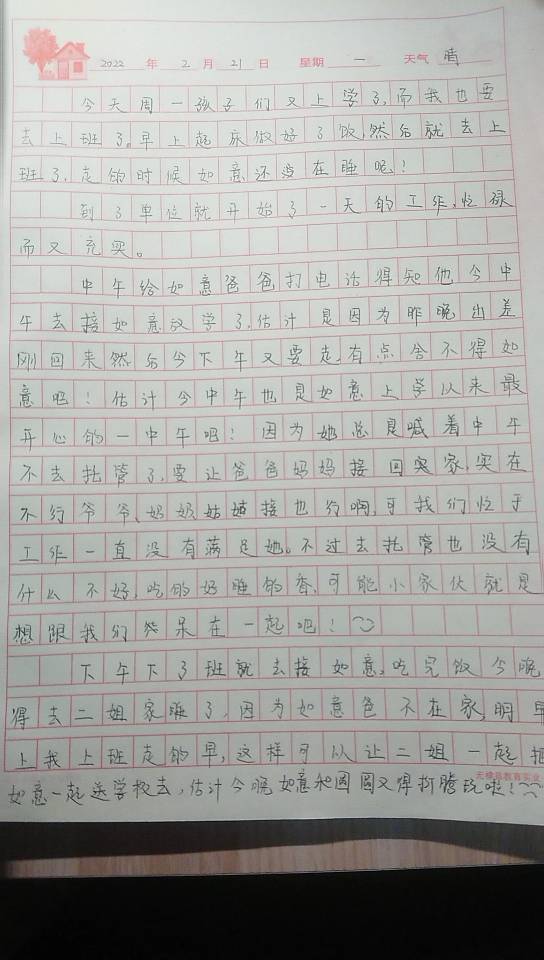 2022 年 2 月 21 日 星期 一 天气 晴
今天周一孩子们又上学了,而我也要
去上班了。早上起床做好了饭,然后就去上
班了,走的时候如意还没在睡呢!
到了单位就开始了一天的工作,忙碌
而又充实。
中午给如意爸爸打电话得知他今中
午去接如意放学了,估计是因为昨晚出差
刚回来然后今下午又要走,有点舍不得如
意吧!估计今中午也是如意上学以来最
开心的一中午吧!因为她总是喊着中午
不去托管了,要让爸爸妈妈接回奕家,实在
不行爷爷、奶奶姑姑接也行啊,可我们忙于
工作一直没有满足她。不过去托管也没有
什么不好,吃的好睡的香,可能小家伙就是
想跟我们能呆在一起吧!
下午下了班就去接如意,吃完饭今晚
得去二姐家睡了,因为如意爸不在家,明早
上我上班走的早,这样可以让二姐一起把
如意一起送学校去,估计今晚如意和圆圆又得折腾玩啦!
无棣县教育实业